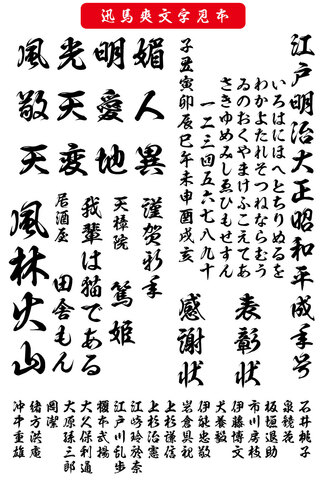 迅馬爽文字見本
江戸明治大正昭和平成年号
いろはにほへとちりぬるを
わかよたれそつねならむう
ゐのおくやまけふこえてあ
さきゆめみしゑひもせすん
一二三四五六七八九十
子丑寅卯辰巳午未申酉戌亥
媚人異
明愛地
光天変
風敬天
表彰状
感謝状
謹賀新年
篤姫
天樟院
我輩は猫である
田舎もん
居酒屋
風林火山
石井桃子
泉鏡花
板垣退助
市川房枝
伊藤博文
犬養毅
伊能忠敬
岩倉具視
上杉謙信
上杉治憲
江崎玲於奈
江戸川乱歩
榎本武揚
大久保利通
大原孫三郎
岡潔
緒方洪庵
沖中重雄